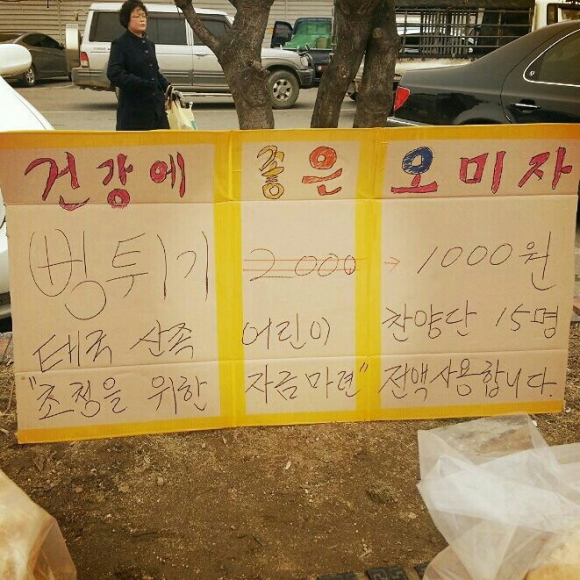 건강에 좋은 오미자
뻥튀기 2000 → 1000원
태국 산족 어린이 찬양단 15명
"초청을 위한 자금마련" 전액사용합니다.